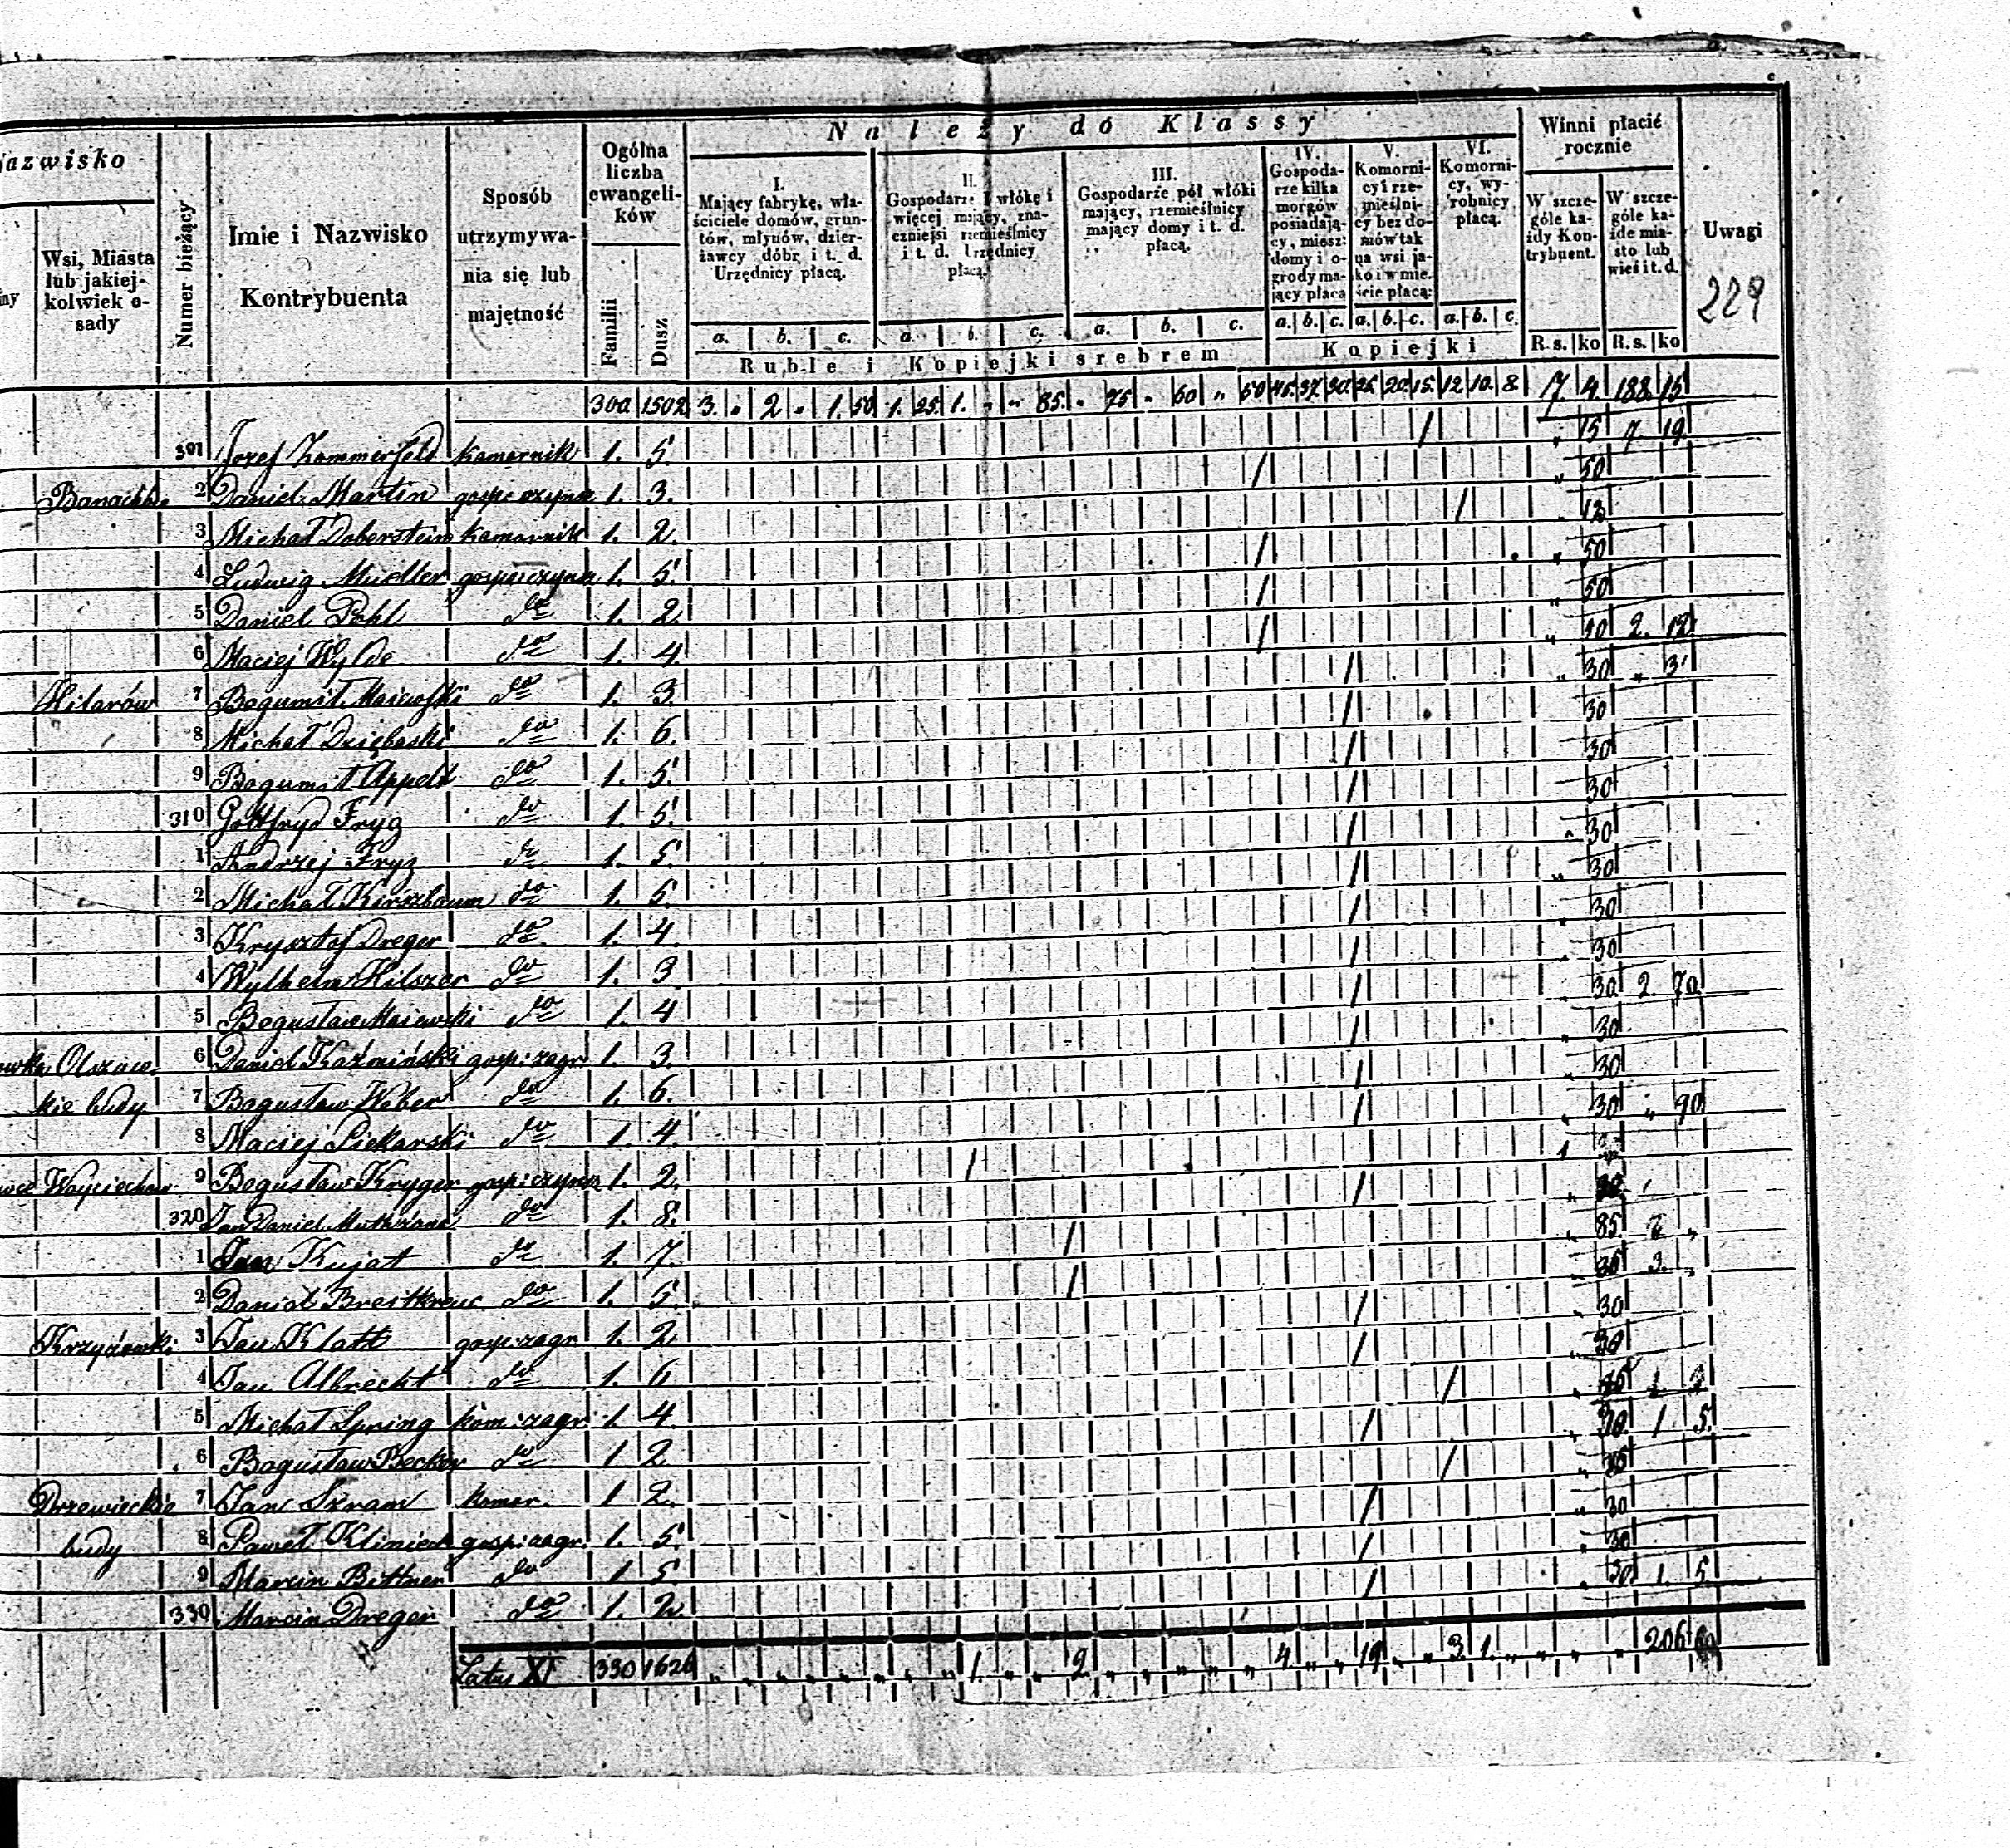 Nazwisko
Wsi, Miasta
lub jakiej-
kolwiek o-
sady
Numer bieżący
Imie i Nazwisko
Kontrybuenta
Sposób
utrzymywa-
nia się lub
majętność
Ogólna
liczba
ewangeli-
ków
Familii
Dusz
Należy do Klassy
I.
Mający fabrykę, wła-
ściciele domów, grun-
tów, młynów, dzier-
żawcy dóbr i t. d.
Urzędnicy płacą.
II.
Gospodarze 1 włókę i
więcej mający, zna-
czniejsi rzemieślnicy
i t. d. Urzędnicy
płacą.
III.
Gospodarze pół włóki
mający, rzemieślnicy
mający domy i t. d.
płacą.
IV.
Gospoda-
rze kilka
morgów
posiadają-
cy, miesz:
domy i o-
grody ma-
jący płacą
V.
Komorni-
cy i rze-
mieślni-
cy bez do-
mów tak
na wsi ja-
ko i w mie-
ście płacą:
VI.
Komorni-
cy, wy-
robnicy
płacą.
a. b. c. a. b. c. a. b. c. a. b. c. a. b. c. a. b. c.
Ruble i Kopiejki srebrem
Kopiejki
Winni płacić
rocznie
W szcze-
góle ka-
żdy Kon-
trybuent.
W szcze-
góle ka-
żde mia-
sto lub
wieś i t. d.
R.s. ko R.s. ko
Uwagi
229
300 1502 3. " 2 " 1. 50 1. 25. 1. " " 85. " 75 " 60 " 50 45. 37. 30. 25. 20. 15. 12. 10. 8. 7. 4. 188. 15
301 Jozef Zommerfeld komornik 1. 5. / " 15 7. 19.
2 Daniel Martin 1. 3. / " 50
3 Michał Doberstein komornik 1. 2. / " 12
4 Ludwig Mueller 1. 5. / " 50
5 Daniel Pohl do 1. 2. / " 50
6 Maciej Wylde do 1. 4. / " 2. 12.
Hilarów 7 Bogumił Majewski do 1. 3. / " 30
8 Michał Dziębaski do 1. 6. / 30
9 Bogumił Appelt do 1. 5. / 30
310 Gottfryd Fryz do 1. 5. / 30
1 Andrzej Fryz do 1. 5. / " 30
2 Michał Kirszbaum do 1. 5. / " 30
3 Krysztof Dreger do 1. 4. / 30
4 Wylhelm Hilszer do 1. 3. / " 30
5 Bogusław Majewski do 1. 4 / " 30 2 70
Olszew- 6 Daniel Kaźmiński gosp: zagr. 1. 3. / " 30
kie budy 7 Bogusław Weber do 1. 6. / " 30
8 Maciej Piekarski do 1. 4. / " 30 " 90
9 Bogusław Kryger gosp: czynsz 1. 2. / 1
320 Jan Daniel do 1. 8. /
1 Jan Kujat do 1. 7. / " 85
2 Daniel do 1. 5. / 3. "
3 Jan Klatt gosp: zagr 1. 2. / " 30
4 Jan Albrecht do 1. 6 / "
5 Michał Spring kom: zagr: 1. 4. / "
6 Bogusław Becker do 1 2 / 1 5.
Drzewieckie 7 Jan Szram komor. 1 2. / "
budy 8 Paweł gosp: zagr. 1. 5. / " 30
9 Marcin Bittner do 1 5. / 30
330 Marcin Dreger do 1. 2. / " 30 1. 5
Latus XI 330 1626 1. 2. 4. 19 3. 1. 206